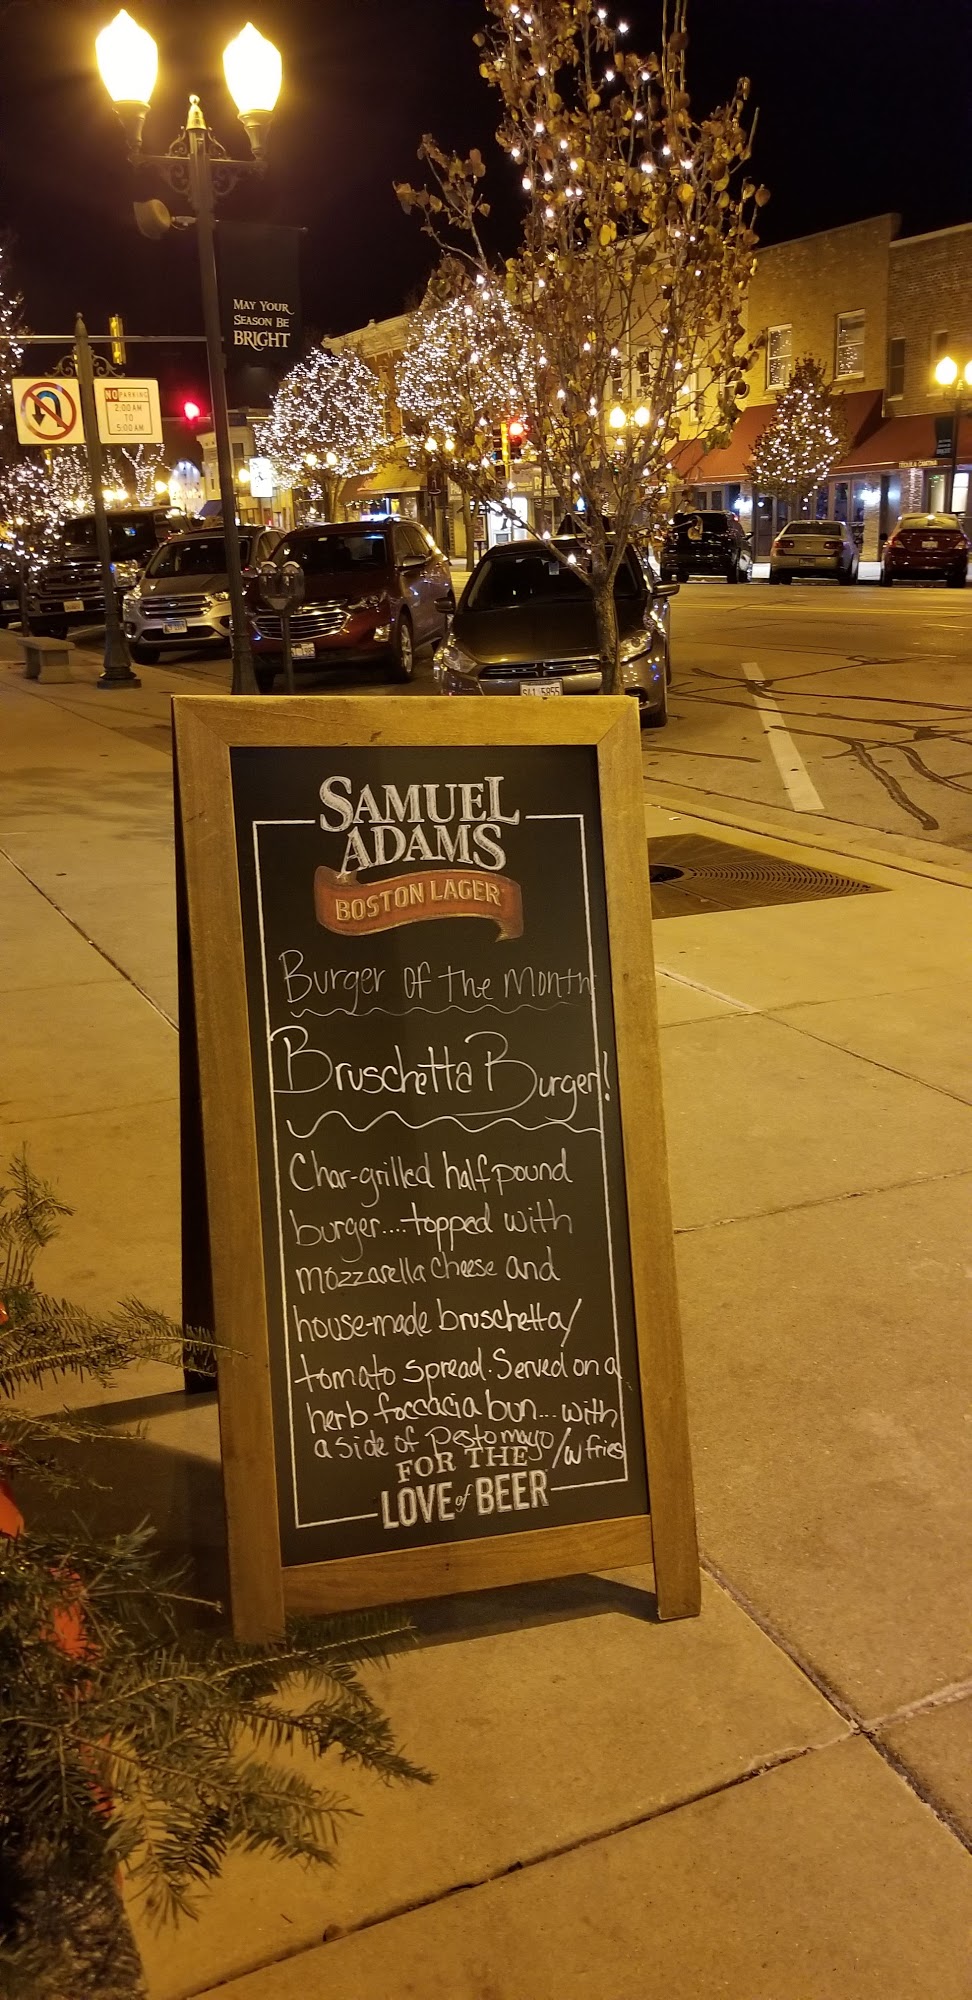 MAY YOUR
SEASON BE
BRIGHT
NO PARKING
2:00 AM
TO
5:00 AM
SAMUEL
ADAMS
BOSTON LAGER
Burger of the Month
Bruschetta Burger!
Char-grilled half pound
burger....topped with
mozzarella cheese and
house-made bruschetta/
tomato spread. Served on a
herb foccacia bun... with
a side of pesto mayo /w fries
FOR THE
LOVE of BEER